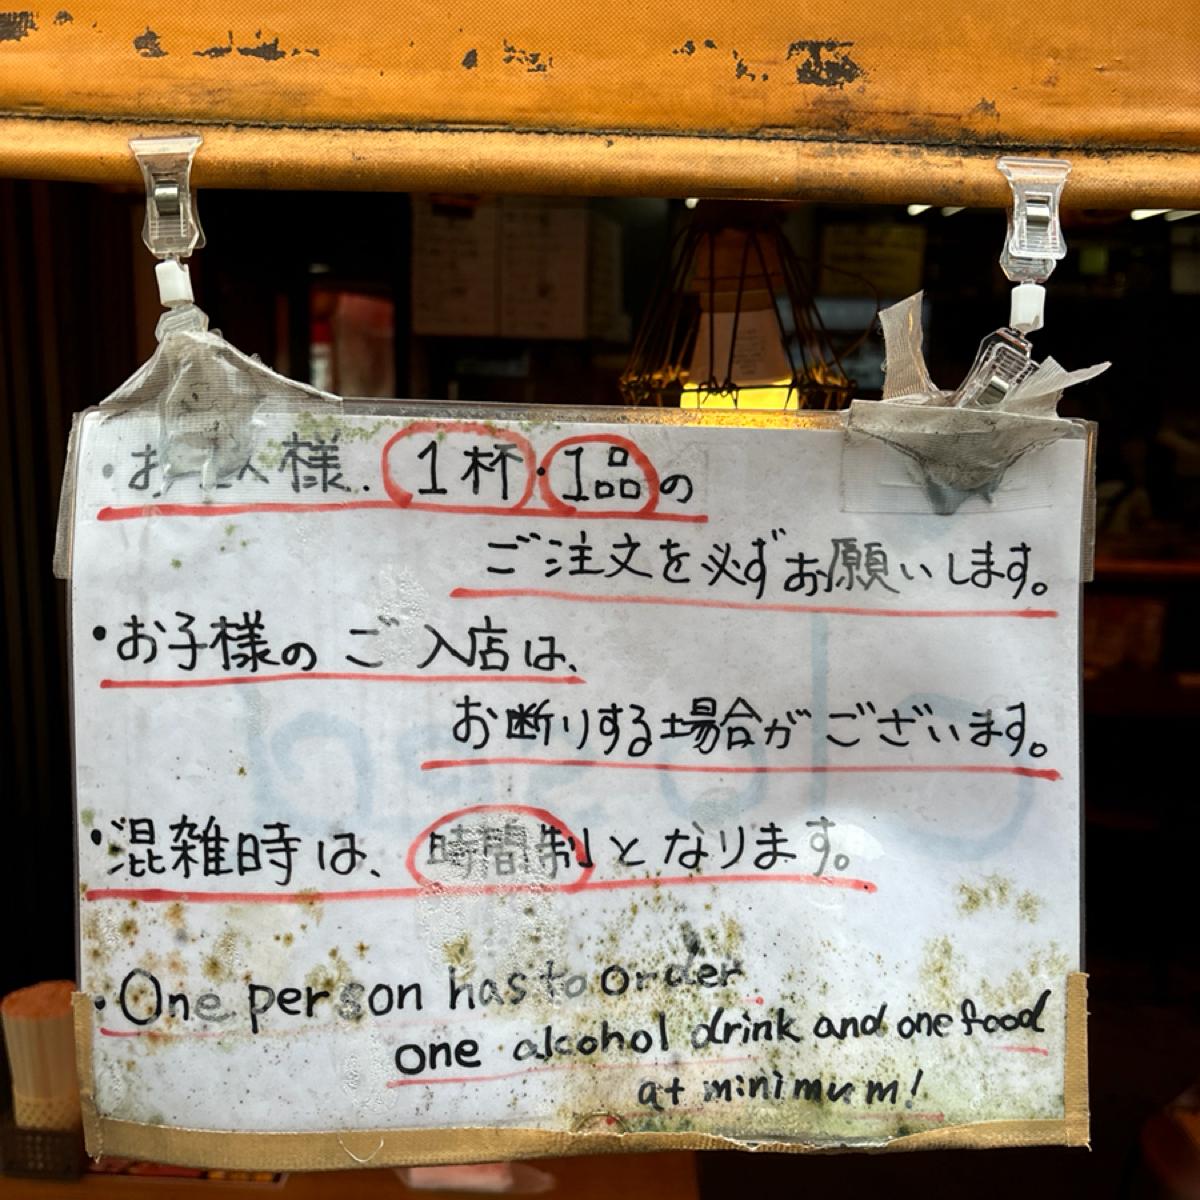 ・お一人様．1杯・1品の
ご注文を必ずお願いします。
・お子様のご入店は、
お断りする場合がございます。
・混雑時は、時間制となります。
・One person has to order
one alcohol drink and one food
at minimum!